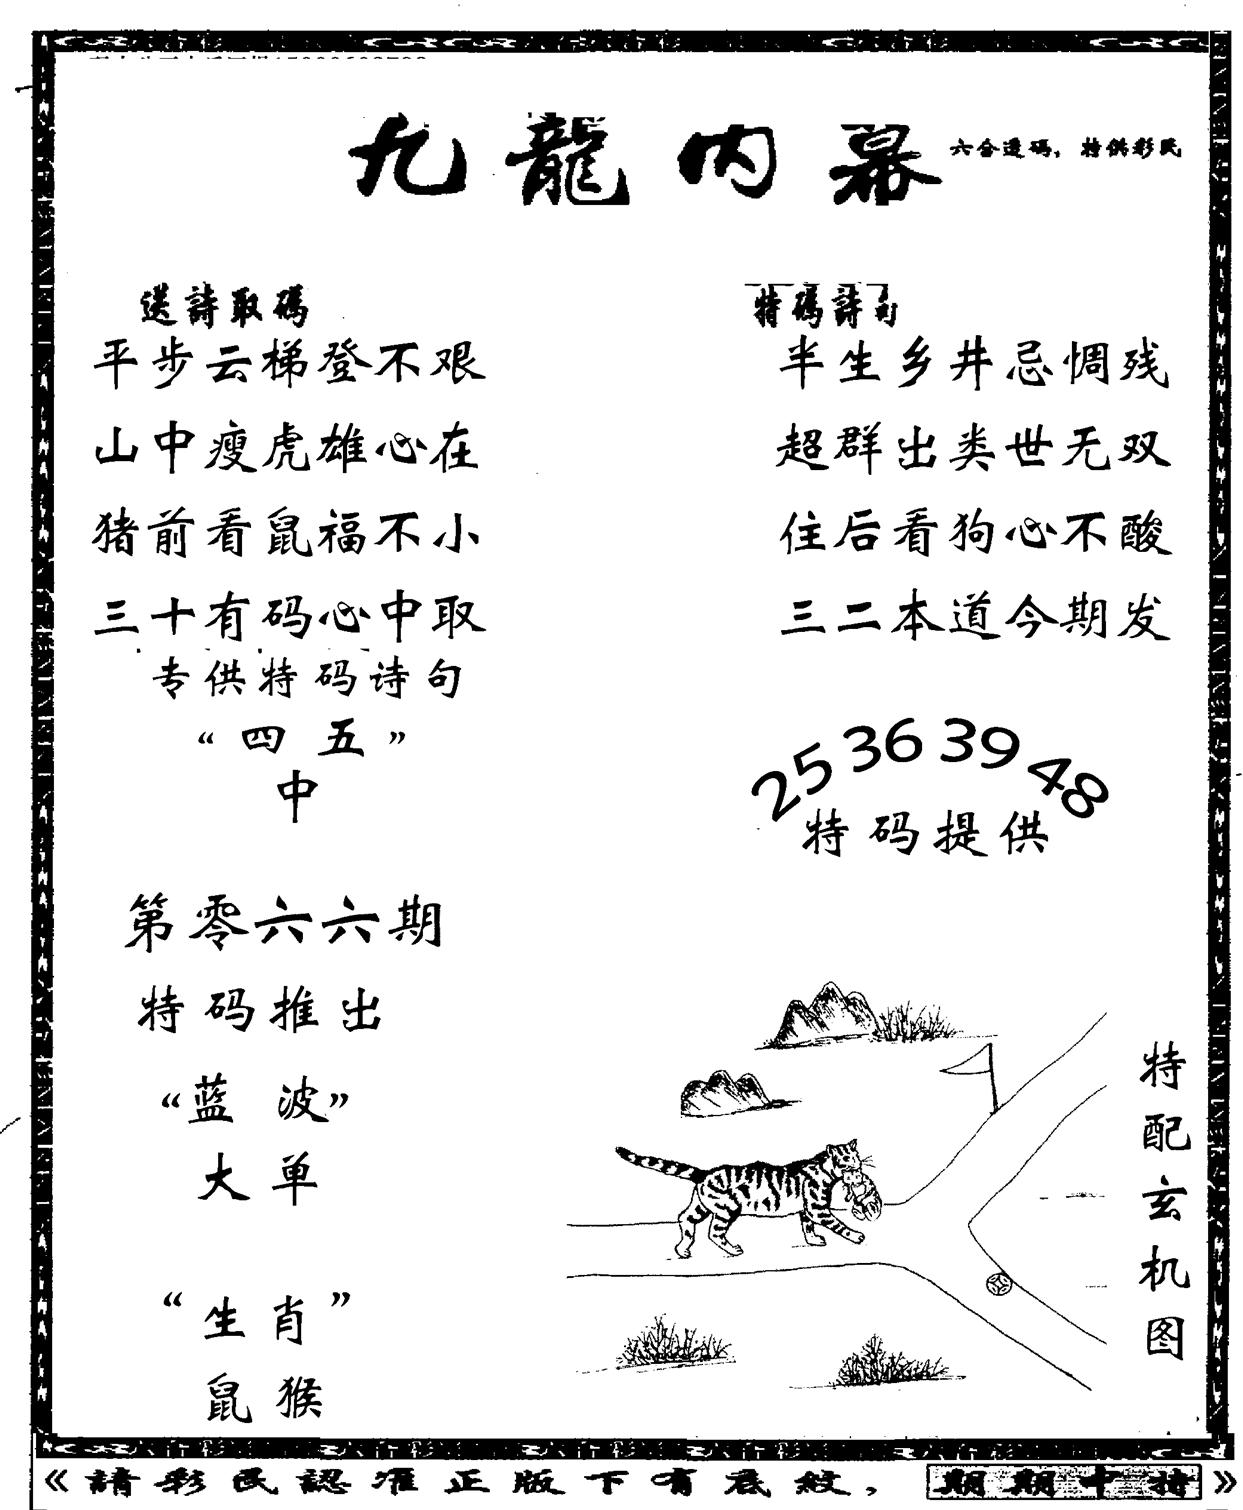 九龍内幕
六合透码，特供彩民
送詩取碼
平步云梯登不艰
山中瘦虎雄心在
猪前看鼠福不小
三十有码心中取
专供特码诗句
“四五”
中
第零六六期
特码推出
“蓝波”
大单
“生肖”
鼠猴
特碼詩句
半生乡井忌惆残
超群出类世无双
住后看狗心不酸
三二本道今期发
25 36 39 48
特码提供
特配玄机图
《請彩民認准正版下有底紋，期期中特》